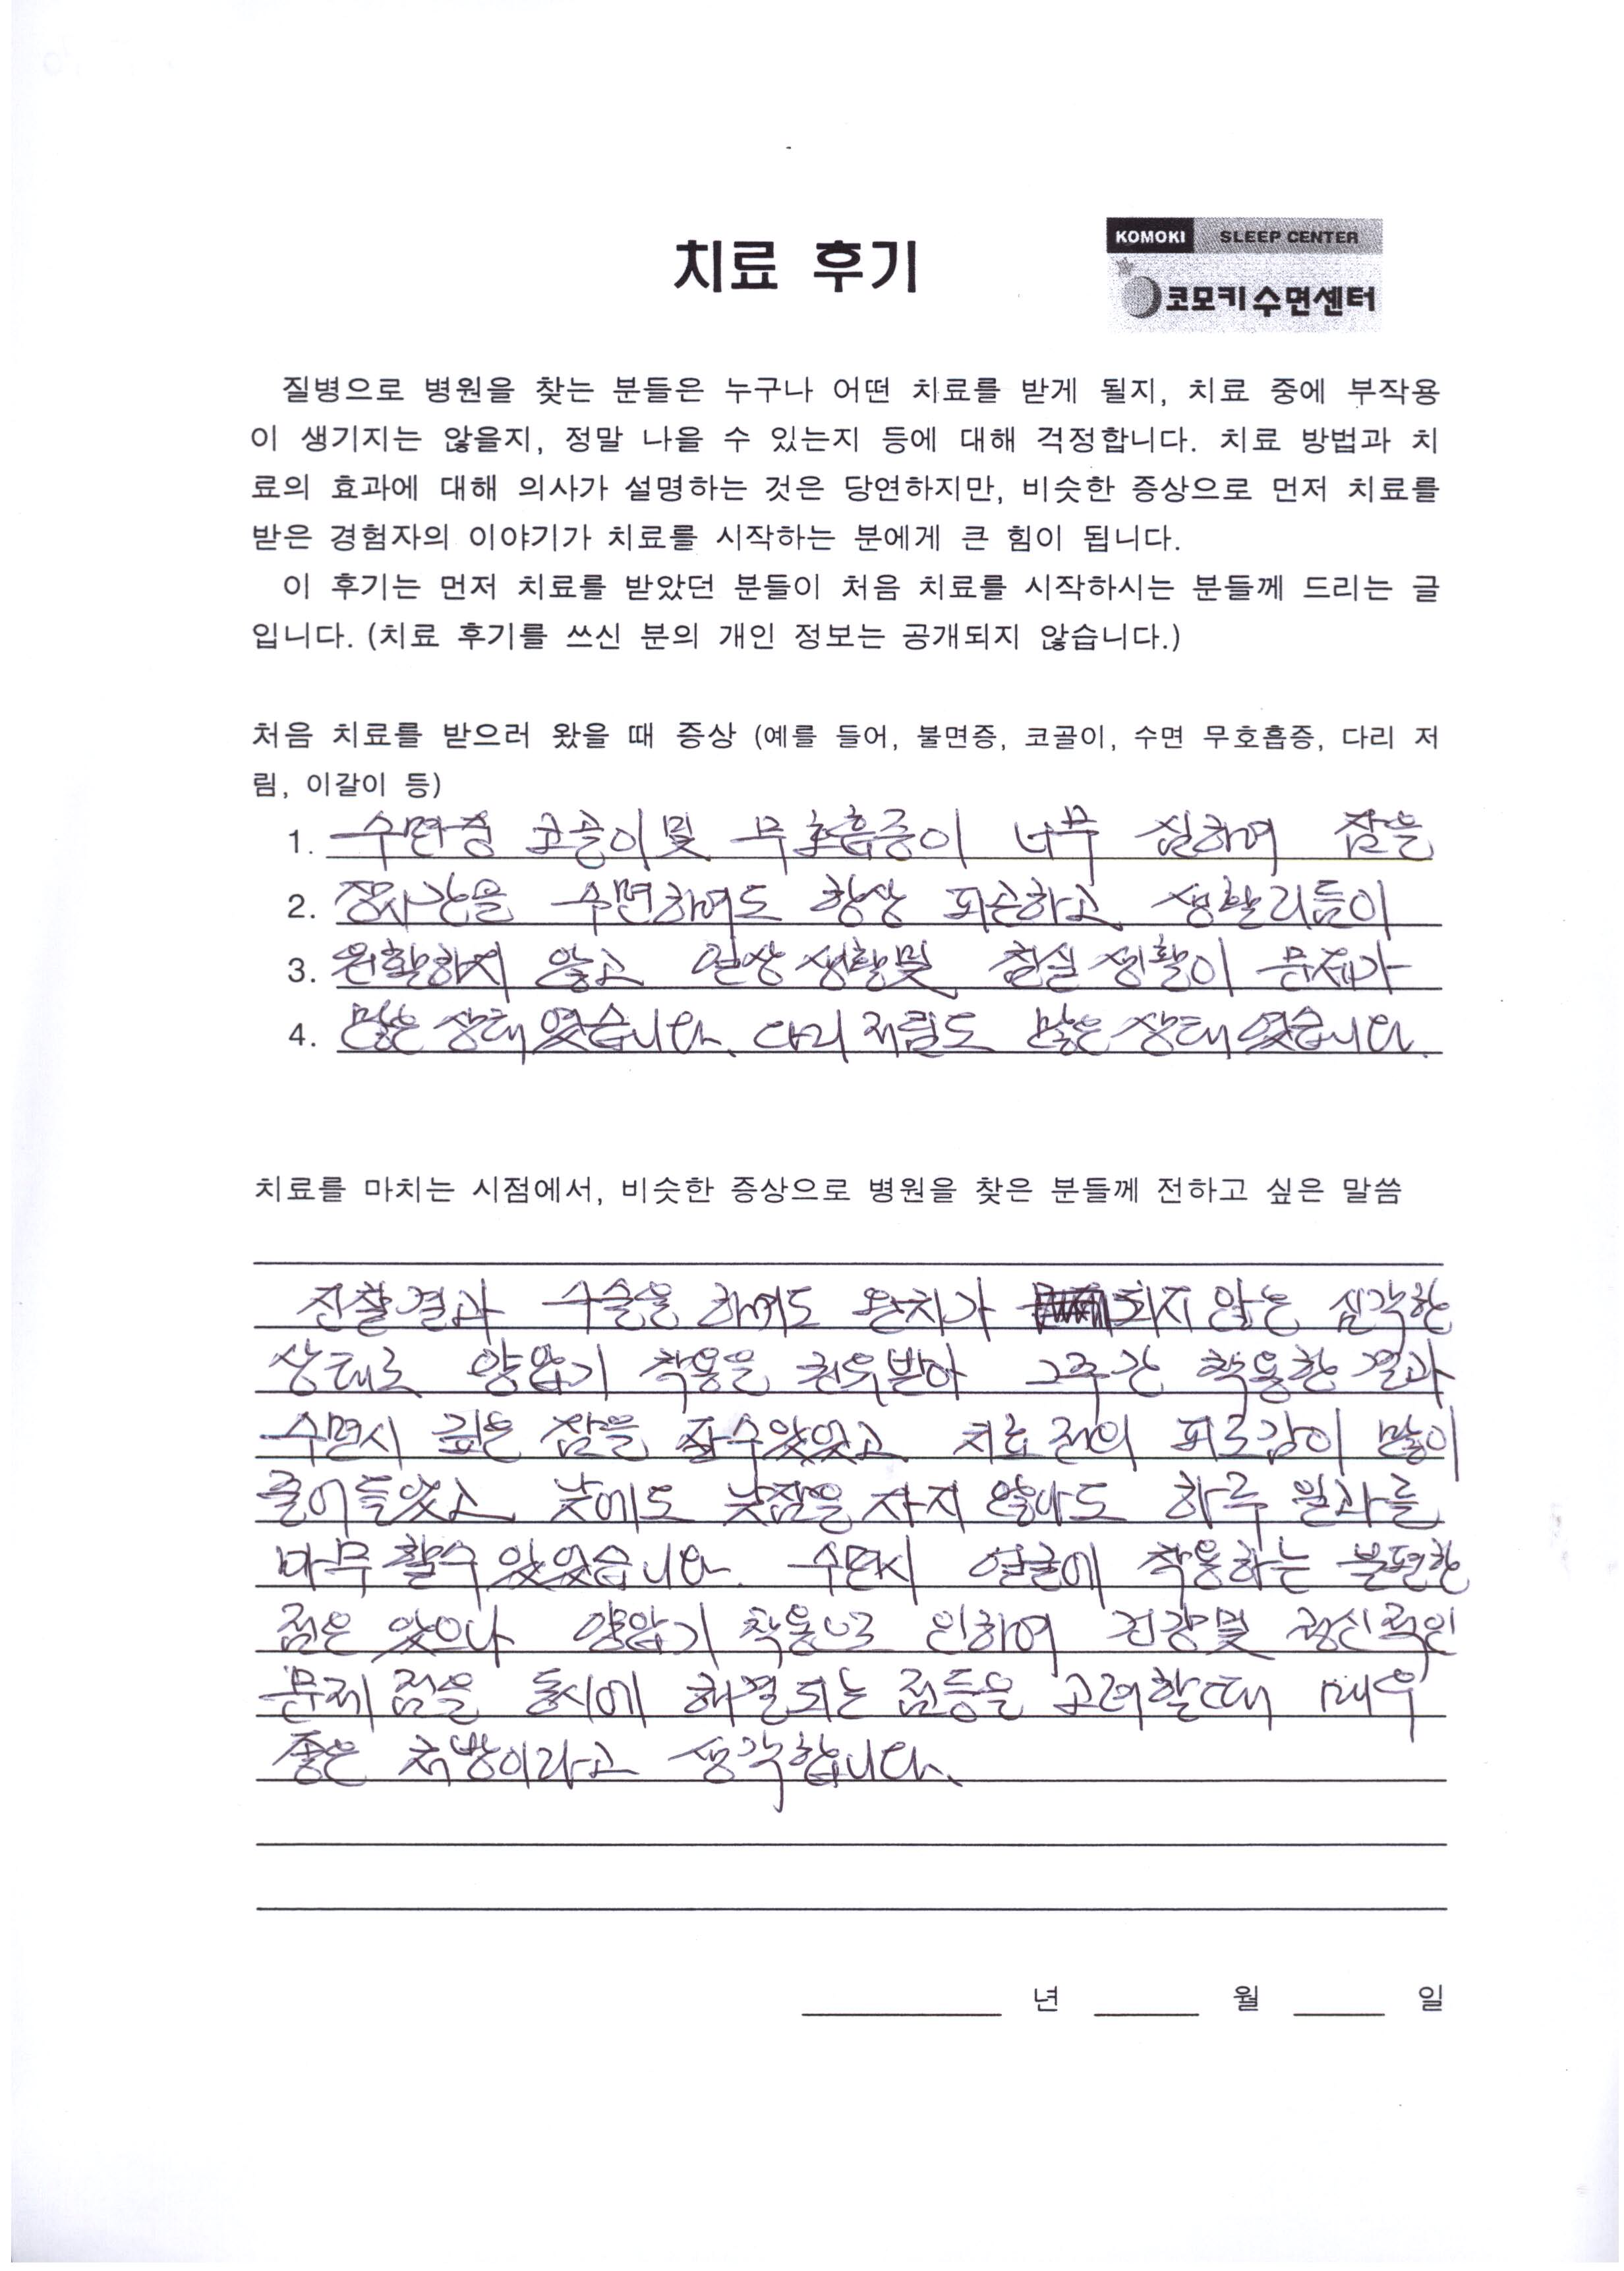 치료 후기
KOMOKI SLEEP CENTER
코모키수면센터
질병으로 병원을 찾는 분들은 누구나 어떤 치료를 받게 될지, 치료 중에 부작용
이 생기지는 않을지, 정말 나을 수 있는지 등에 대해 걱정합니다. 치료 방법과 치
료의 효과에 대해 의사가 설명하는 것은 당연하지만, 비슷한 증상으로 먼저 치료를
받은 경험자의 이야기가 치료를 시작하는 분에게 큰 힘이 됩니다.
이 후기는 먼저 치료를 받았던 분들이 처음 치료를 시작하시는 분들께 드리는 글
입니다. (치료 후기를 쓰신 분의 개인 정보는 공개되지 않습니다.)
처음 치료를 받으러 왔을 때 증상 (예를 들어, 불면증, 코골이, 수면 무호흡증, 다리 저
림, 이갈이 등)
1. 수면중 코골이및 무호흡증이 너무 심하며 잠을
2. 장시간을 수면하여도 항상 피곤하고 생활리듬이
3. 원활하지 않고 생활및 침실생활이 문제가
4. 많은 상태였습니다. 다리 저림도 많은 상태였습니다.
치료를 마치는 시점에서, 비슷한 증상으로 병원을 찾은 분들께 전하고 싶은 말씀
진찰결과 수술을 하여도 완치가 되지 않는 심각한
상태로 양압기 착용을 권유받아 착용한 결과
수면시 깊은 잠을 잘수있었고 치료전의 피로감이 많이
줄어들었고 낮에도 낮잠을 자지 않아도 하루 일과를
마무할수 있었습니다. 수면시 얼굴에 착용하는 불편한
점은 있으나 양압기 착용으로 인하여 건강및 정신적인
문제점을 동시에 해결되는 점등을 고려할때 매우
좋은 처방이라고 생각합니다.
년 월 일